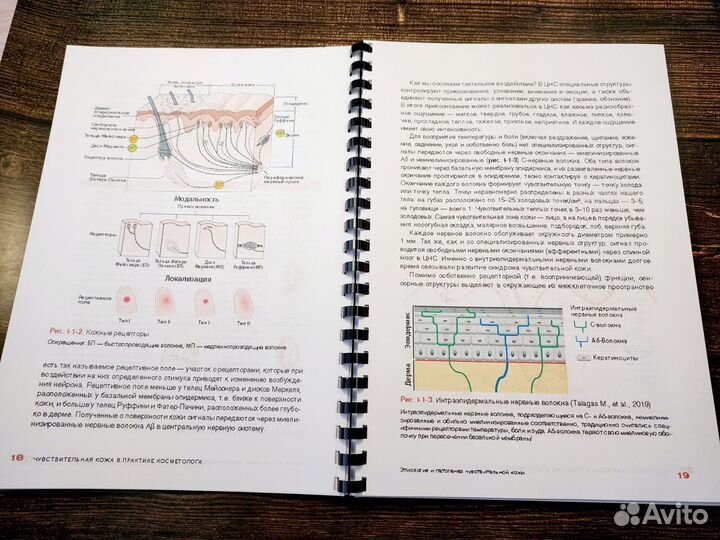 Кожа, покрытая волосами
Голая кожа
Эпидермис
Дермо-эпидермальное соединение
Свободное нервное окончание
Тельце Мейсснера
Диск Меркеля
Рецептор волоса
Тельце Фатера-Пачини
Тельце Руффини
Дерма
Периферический нервный пучок
Модальность
Прикосновение
Рецепторы
Тельце Мейсснера (БП)
Тельце Фатера-Пачини (БП)
Диск Меркеля (МП)
Тельце Руффини (МП)
Локализация
Рецептивное поле
Тип I
Тип II
Тип I
Тип II
Рис. I-1-2. Кожные рецепторы
Сокращения: БП — быстропроводящие волокна, МП — медленнопроводящие волокна.
есть так называемое рецептивное поле — участок с рецепторами, которые при
воздействии на них определенного стимула приводят к изменению возбужде-
ния нейрона. Рецептивное поле меньше у телец Мейсснера и дисков Меркеля,
расположенных у базальной мембраны эпидермиса, т.е. ближе к поверхности
кожи, и больше у телец Руффини и Фатер-Пачини, расположенных более глубо-
ко в дерме. Полученные о поверхности кожи сигналы передаются через миели-
низированные нервные волокна Aβ в центральную нервную систему.
18
ЧУВСТВИТЕЛЬНАЯ КОЖА В ПРАКТИКЕ КОСМЕТОЛОГА
Как мы осознаем тактильное воздействие? В ЦНС специальные структуры
контролируют прикосновение, узнавание, внимание и эмоции, а также объ-
единяют полученные сигналы с сигналами других систем (зрение, обоняние).
В итоге прикосновение может реализоваться в ЦНС как весьма разнообраз-
ное ощущение — мягкое, твердое, грубое, гладкое, влажное, липкое, колю-
чее, прохладное, теплое, тяжелое, приятное, неприятное. И каждое ощущение
имеет свою интенсивность.
Для восприятия температуры и боли (включая раздражение, щипание, жже-
ние, онемение, укол и собственно боль) нет специализированных структур, сиг-
налы передаются через свободные нервные окончания — миелинизированные
Aδ и немиелинизированные (рис. I-1-3) С-нервные волокна. Оба типа волокон
пронизывают через базальную мембрану эпидермиса, и их разветвленные нервные
окончания простираются в эпидермисе, тесно контактируя с кератиноцитами.
Окончание каждого волокна формирует чувствительную точку — точку холода
или точку тепла. Точки неравномерно распределены в разных частях нашего
тела: на губах расположено по 15–25 холодовых точек/см², на пальцах — 3–5,
на туловище — всего 1. Чувствительных теплых точек в 3–10 раз меньше, чем
холодовых. Самая чувствительная зона кожи — лицо, а на лице в порядке убыва-
ния: носогубная складка, малярное возвышение, подбородок, лоб, верхняя губа.
Каждое нервное волокно обслуживает окружность диаметром примерно
1 мм. Так же, как и со специализированных нервных структур, сигнал про-
водится свободными нервными окончаниями (афферентными) через спинной
мозг в ЦНС. Именно с внутриэпидермальными нервными волокнами долгое
время связывали развитие синдрома чувствительной кожи.
Помимо собственно рецепторной (т.е. воспринимающей) функции, сен-
сорные структуры выделяют в окружающее их межклеточное пространство
Эпидермис
Дерма
Интраэпидермальные нервные волокна
С-волокна
Aδ-Волокна
Кератиноциты
Рис. I-1-3. Интраэпидермальные нервные волокна (Talagas M., et al., 2019)
Интраэпидермальные нервные волокна, подразделяющиеся на С- и Aδ-волокна, немиелини-
зированные и обильно миелинизированные соответственно, традиционно считались спец-
ифичными рецепторами температуры, боли и зуда. Aδ-волокна теряют свою миелиновую обо-
лочку при пересечении базальной мембраны
Этиология и патогенез чувствительной кожи
19
Avito